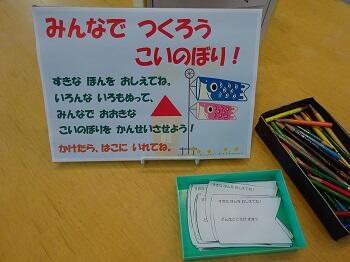 みんなで つくろう
こいのぼり！
すきな ほんを おしえてね。
いろんな いろもぬって、
みんなで おおきな
こいのぼりを かんせいさせよう！
かけたら、はこに いれてね。
すきな ほんを おしえてね！